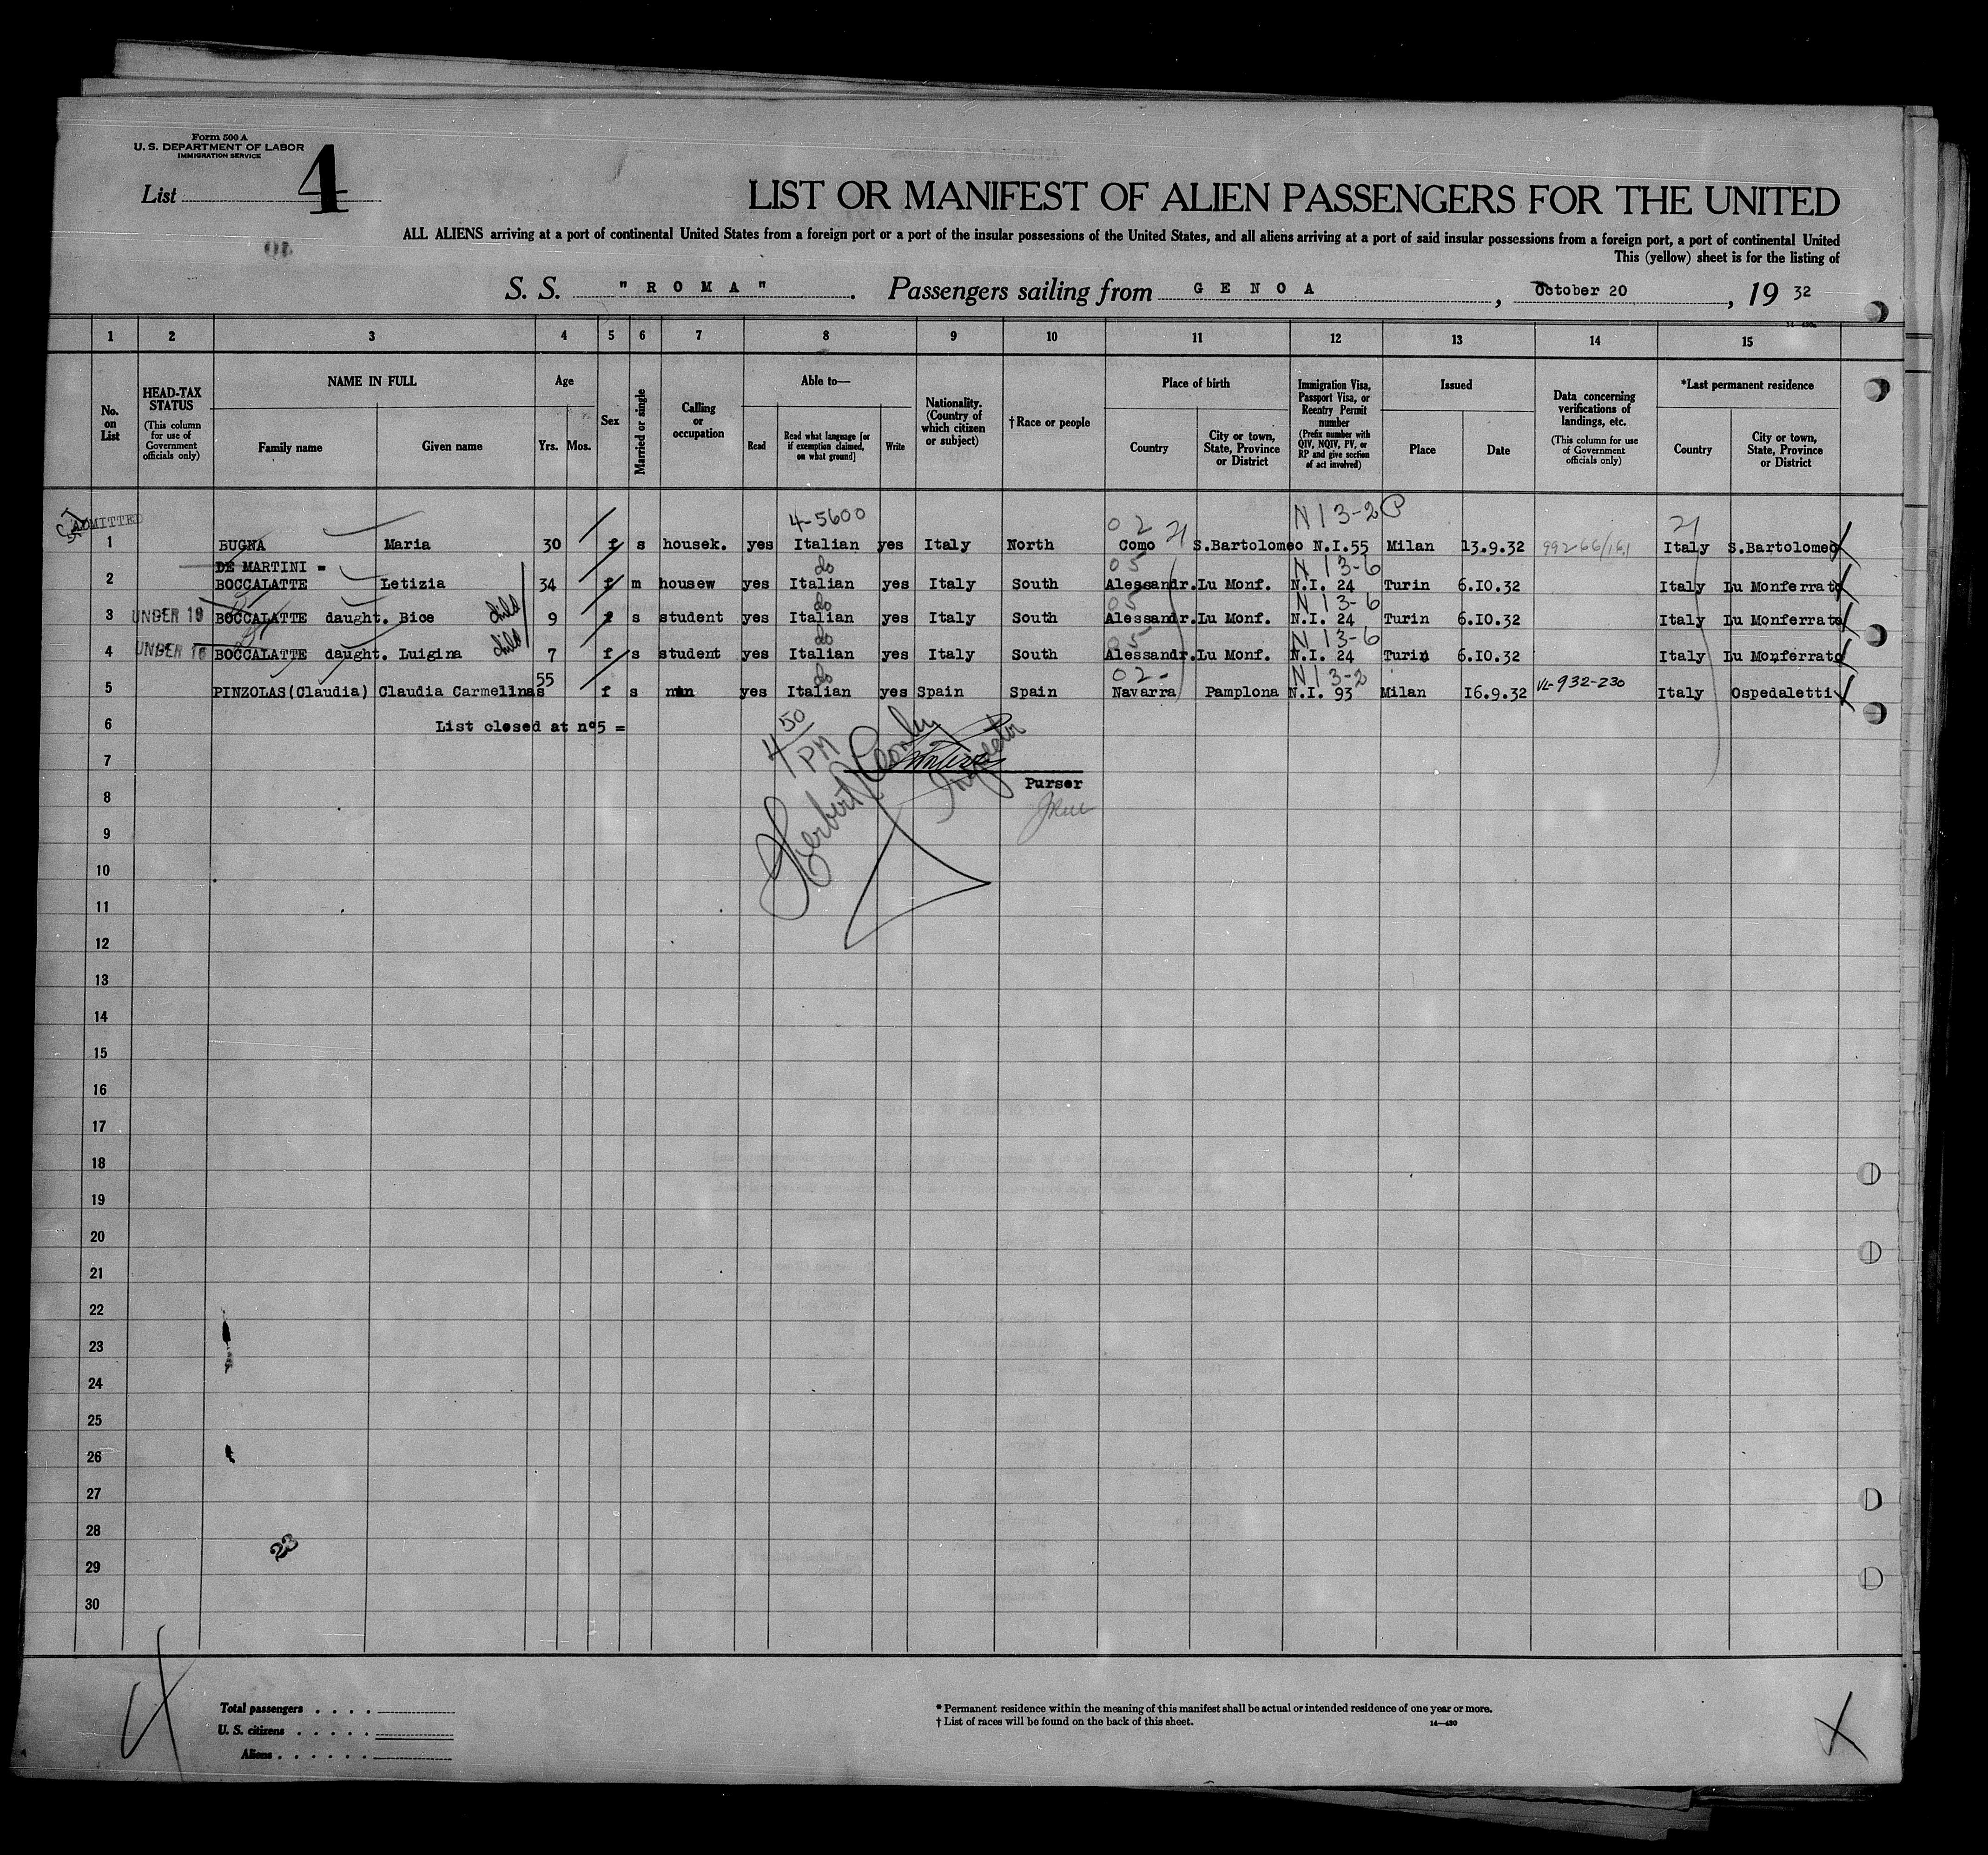 Form 500 A
U. S. DEPARTMENT OF LABOR
IMMIGRATION SERVICE
List 4
LIST OR MANIFEST OF ALIEN PASSENGERS FOR THE UNITED
ALL ALIENS arriving at a port of continental United States from a foreign port or a port of the insular possessions of the United States, and all aliens arriving at a port of said insular possessions from a foreign port, a port of continental United
This (yellow) sheet is for the listing of
S. S. "ROMA". Passengers sailing from GENOA, October 20, 19 32
1 2 3 4 5 6 7 8 9 10 11 12 13 14 15
No. on List
HEAD-TAX STATUS (This column for use of Government officials only)
NAME IN FULL Family name Given name
Age Yrs. Mos.
Sex
Married or single
Calling or occupation
Able to— Read Read what language [or if exemption claimed, on what ground] Write
Nationality. (Country of which citizen or subject)
†Race or people
Place of birth Country City or town, State, Province or District
Immigration Visa, Passport Visa, or Reentry Permit number (Prefix number with QIV, NQIV, PV, or RP and give section of act involved)
Issued Place Date
Data concerning verifications of landings, etc. (This column for use of Government officials only)
*Last permanent residence Country City or town, State, Province or District
ADMITTED
4-5600 02 21 N I 3-2 P 21
1 BUGNA Maria 30 f s housek. yes Italian yes Italy North Como S.Bartolomeo N.I.55 Milan 13.9.32 Italy S.Bartolomeo
DE MARTINI = do 05 N I 3-6
2 BOCCALATTE Letizia 34 f m housew yes Italian yes Italy South Alessandr. Lu Monf. N.I. 24 Turin 6.10.32 Italy Lu Monferrato
child do 05 N I 3-6
3 UNDER 16 BOCCALATTE daught. Bice 9 f s student yes Italian yes Italy South Alessandr. Lu Monf. N.I. 24 Turin 6.10.32 Italy Lu Monferrato
child do 05 N I 3-6
4 UNDER 16 BOCCALATTE daught. Luigina 7 f s student yes Italian yes Italy South Alessandr. Lu Monf. N.I. 24 Turin 6.10.32 Italy Lu Monferrato
do 02- N I 3-2
5 PINZOLAS(Claudia) Claudia Carmelinas 55 f s nun yes Italian yes Spain Spain Navarra Pamplona N.I. 93 Milan 16.9.32 VL-932-230 Italy Ospedaletti
6 List closed at n°5 =
4 50 PM
Herbert
Inspector
7
Purser
8
9
10
11
12
13
14
15
16
17
18
19
20
21
22
23
24
25
26
27
28
29
30
Total passengers . . . .
U. S. citizens . . . . .
Aliens . . . . . .
* Permanent residence within the meaning of this manifest shall be actual or intended residence of one year or more.
† List of races will be found on the back of this sheet. 14—430